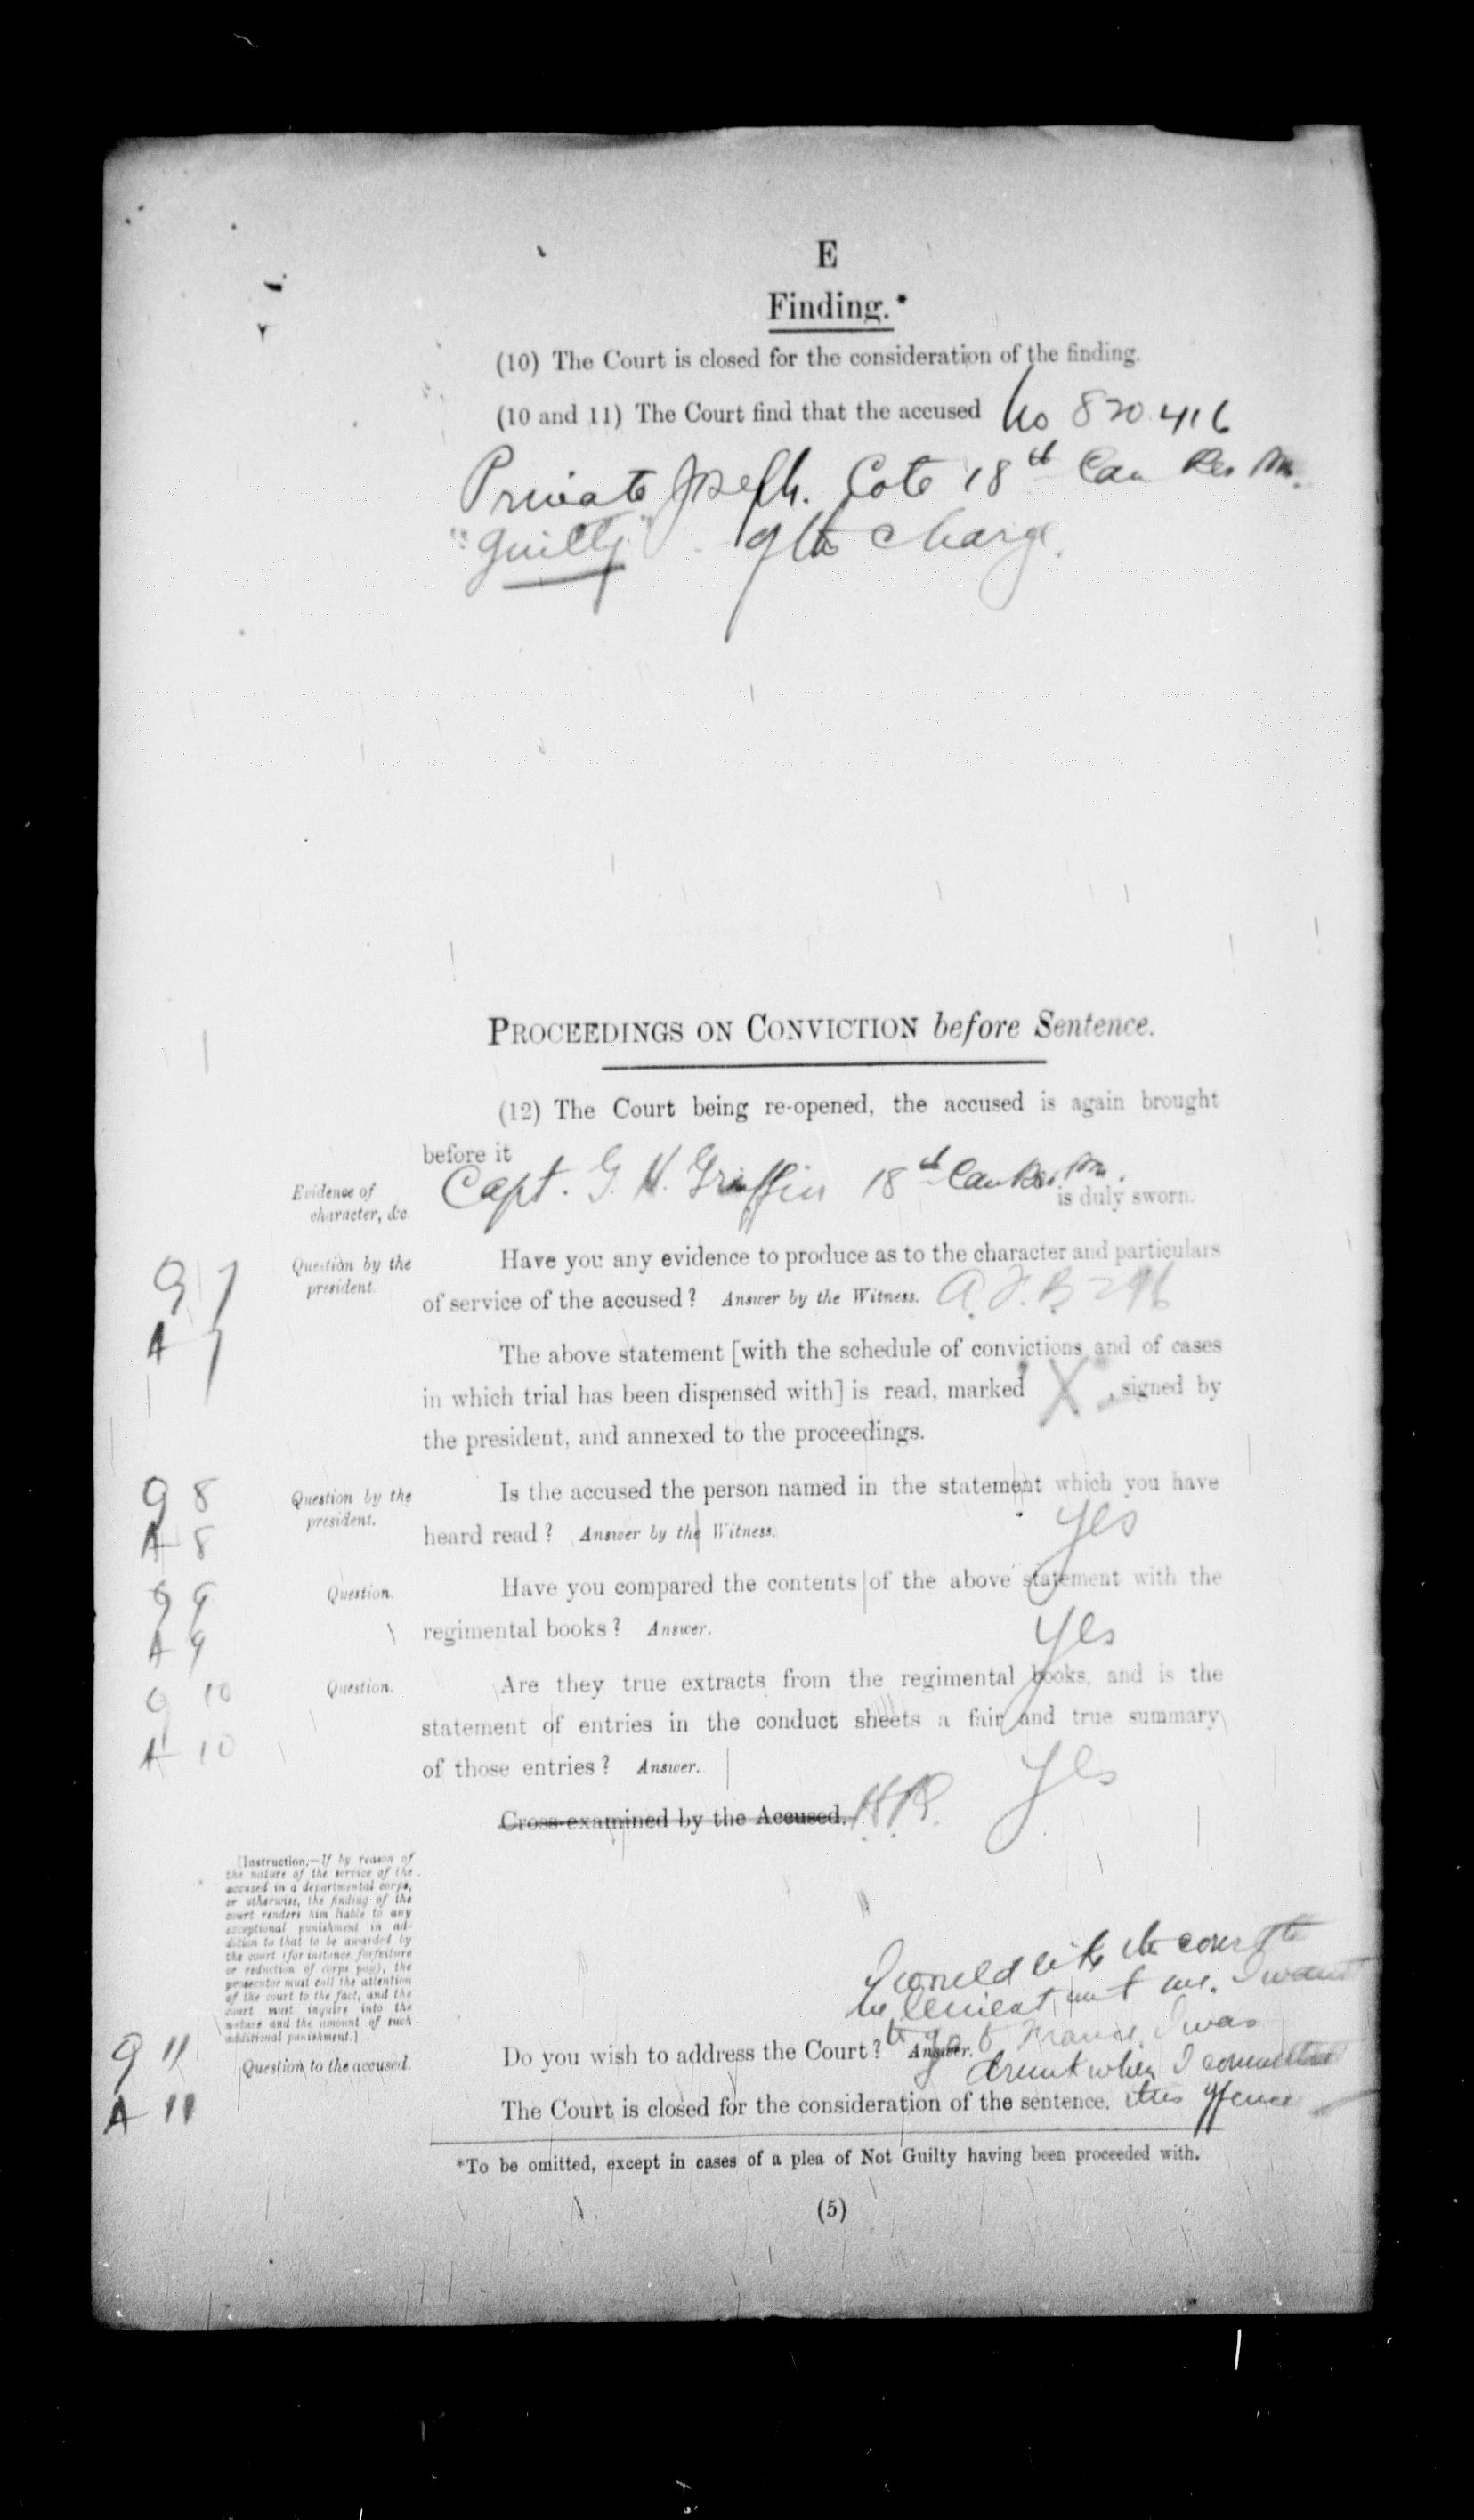 E
Finding.*
(10) The Court is closed for the consideration of the finding.
(10 and 11) The Court find that the accused No 820416
Private Joseph. Cote 18th Can Res Bn.
"Guilty" of the charge.
PROCEEDINGS ON CONVICTION before Sentence.
(12) The Court being re-opened, the accused is again brought
before it
Evidence of
character, &c.
Capt. G. H. Griffin 18th Can Res Bn.
is duly sworn.
Q 7
Question by the
president.
Have you any evidence to produce as to the character and particulars
of service of the accused? Answer by the Witness. A.F. B 296
A 7
The above statement [with the schedule of convictions and of cases
in which trial has been dispensed with] is read, marked "X", signed by
the president, and annexed to the proceedings.
Q 8
Question by the
president.
Is the accused the person named in the statement which you have
heard read? Answer by the Witness. Yes
A 8
Q 9
Question.
Have you compared the contents of the above statement with the
regimental books? Answer. Yes
A 9
Q 10
Question.
Are they true extracts from the regimental books, and is the
statement of entries in the conduct sheets a fair and true summary
of those entries? Answer. Yes
A 10
Cross-examined by the Accused.
[Instruction.—If by reason of
the nature of the service of the
accused in a departmental corps,
or otherwise, the finding of the
court renders him liable to any
exceptional punishment in ad-
dition to that to be awarded by
the court (for instance, forfeiture
or reduction of corps pay), the
prosecutor must call the attention
of the court to the fact, and the
court must inquire into the
nature and the amount of such
additional punishment.]
I would like the court to
be lenient with me. I want
to go to France. I was
drunk when I committed
this offence
Q 11
Question to the accused.
Do you wish to address the Court? Answer.
A 11
The Court is closed for the consideration of the sentence.
*To be omitted, except in cases of a plea of Not Guilty having been proceeded with.
(5)